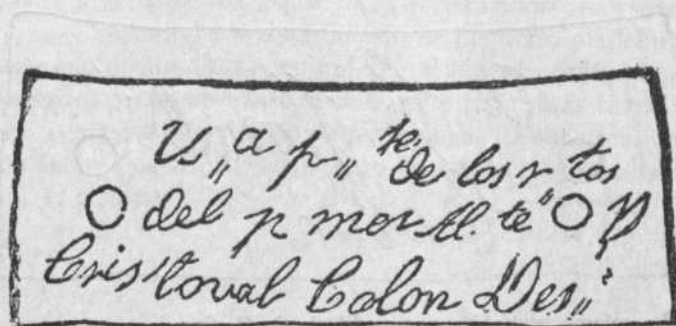 U,, a p,, te. de los r,, tos
del p mer Al. te D
Cristoval Colon Des,,r